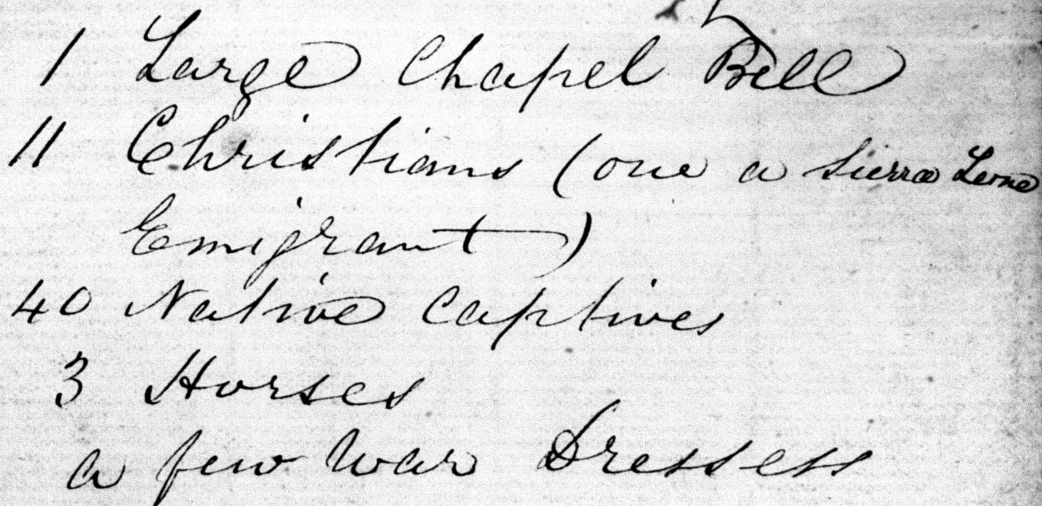 1 Large Chapel Bell
11 Christians (one a Sierra Leone
Emigrant)
40 Native Captives
3 Horses
a few War Dressess